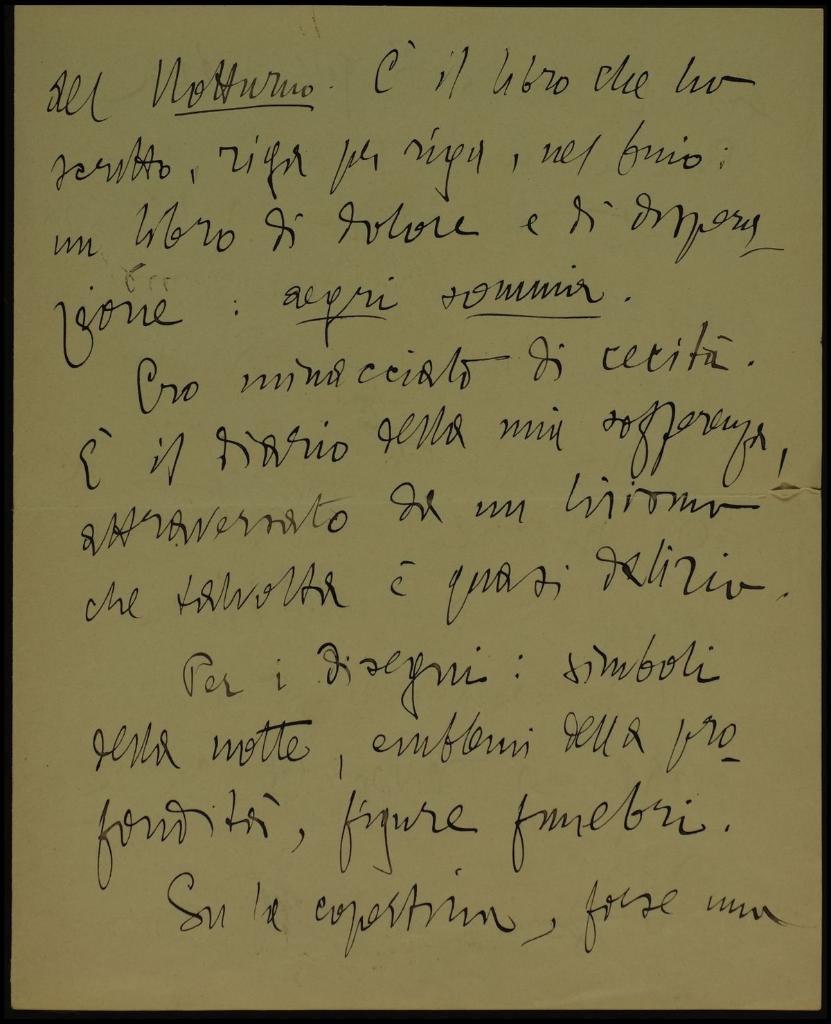 del Notturno. È il libro che ho
scritto, riga per riga, nel buio:
un libro di dolore e di dispera_
zione : aegri somnia.
Ero minacciato di cecità.
È il diario della mia sofferenza,
attraversato da un lirismo
che talvolta è quasi delirio.
Per i disegni : simboli
della notte, emblemi della pro_
fondità, figure funebri.
Su la copertina, forse una